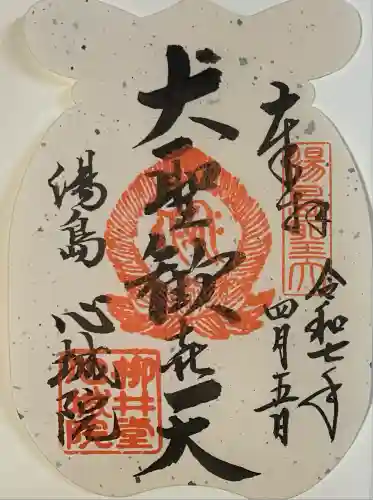 奉拝
令和七年
四月五日
大聖歓喜天
湯島
心城院
柳井堂
心城院